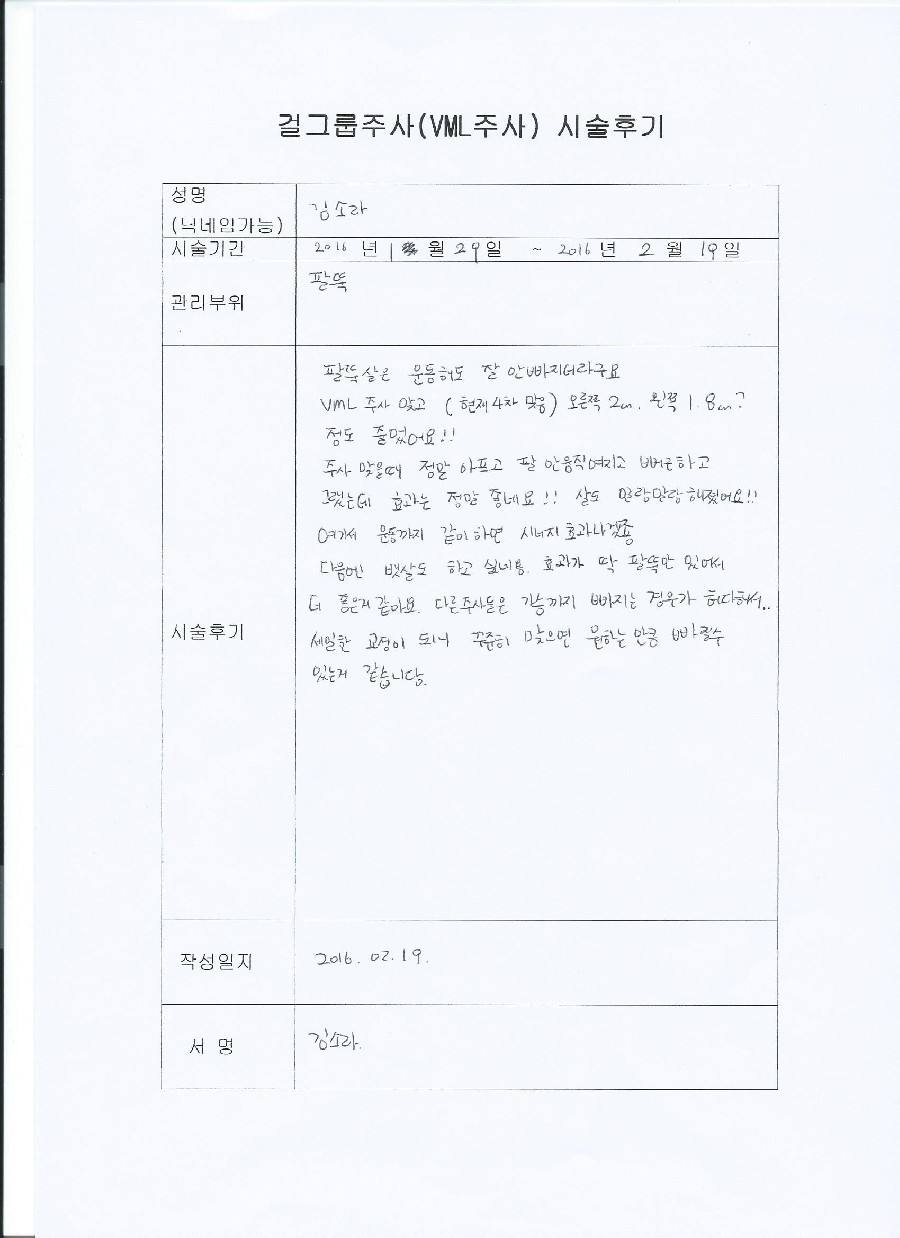 걸그룹주사(VML주사) 시술후기
성명
(닉네임가능)
김소라
시술기간
2016 년 1 월 29일 ~ 2016 년 2 월 19일
관리부위
팔뚝
시술후기
팔뚝살은 운동해도 잘 안빠지더라구요
VML 주사 맞고 (현제 4차 맞음) 오른쪽 2cm. 왼쪽 1.8cm?
정도 줄었어요!!
주사 맞을때 정말 아프고 팔 안움직여지고 뻐근하고
그랬는데 효과는 정말 좋네요!! 살도 말랑말랑해졌어요!!
여기서 운동까지 같이하면 시너지 효과나겠죵
다음엔 뱃살도 하고 싶네용. 효과가 딱 팔뚝만 있어서
더 좋은거 같아요. 다른주사들은 가슴까지 빠지는 경우가 허다해서..
세밀한 교정이 되니 꾸준히 맞으면 원하는 만큼 빠질수
있는거 같습니다.
작성일지
2016. 02. 19.
서 명
김소라.